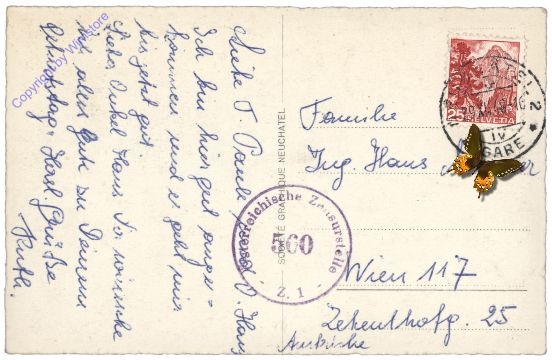 Liebe T. Paula, O. Hans
Ich bin hier gut ange=
kommen und es geht mir
bis jetzt gut.
Lieber Onkel Hans Dir wünsche
ich alles Gute zu Deinem
Geburtstag. Herzl. Grüße
Ruth.
SOCIÉTÉ GRAPHIQUE NEUCHATEL
Österreichische Zensurstelle
560
Z. 1
25
HELVETIA
2
IV
GARE
Familie
Ing. Hans
Wien 117
Zehenthofg. 25
Autriche
Copyright by Winstore